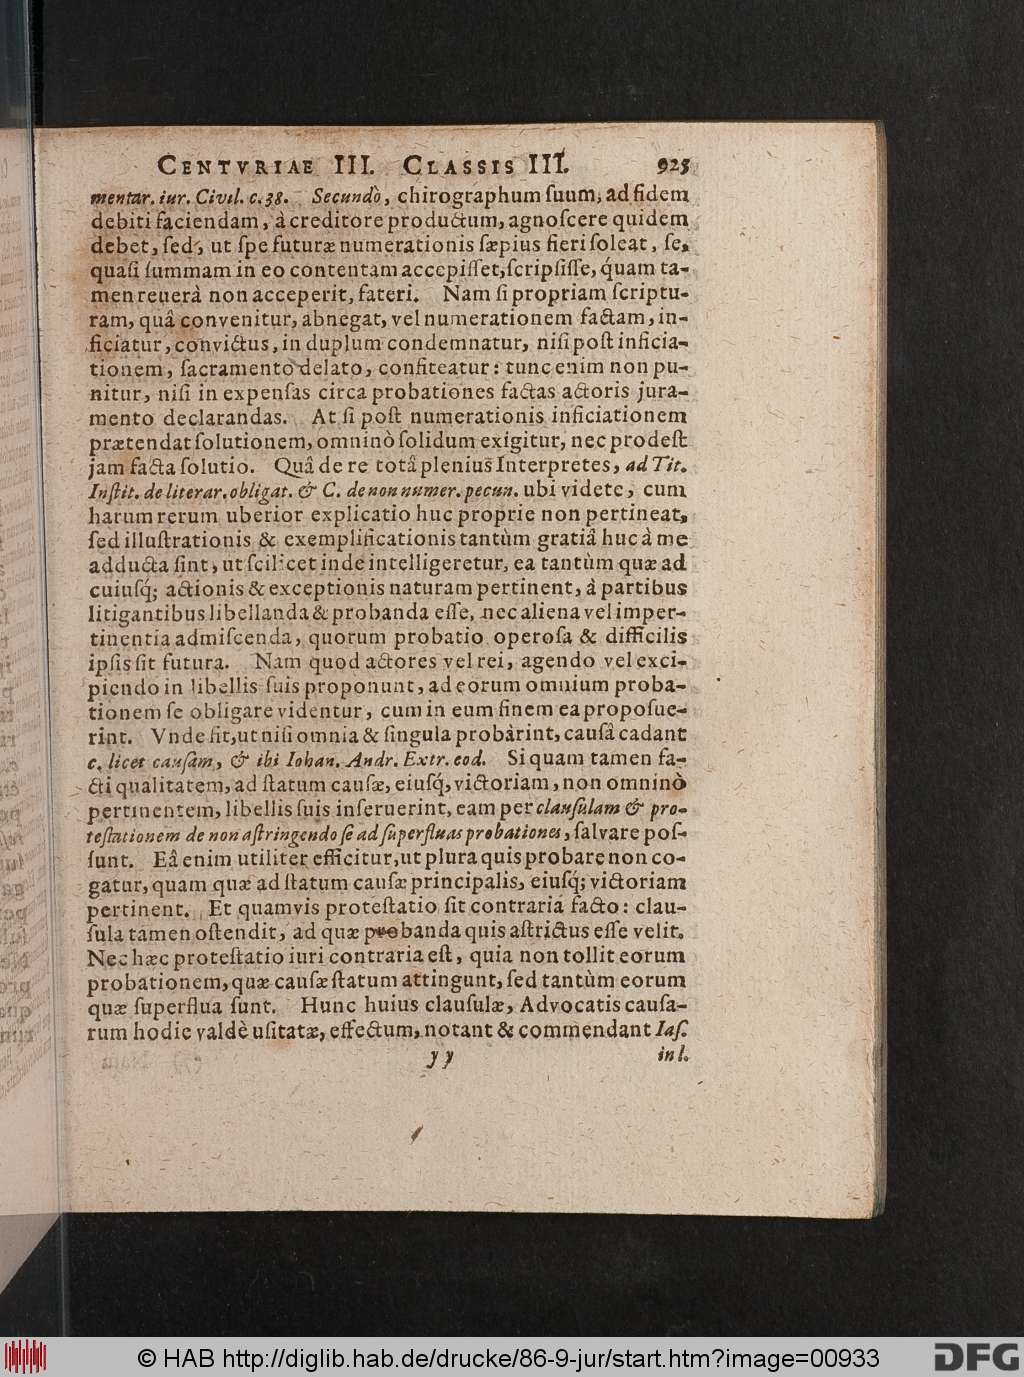 CENTVRIAE III. CLASSIS III. 925
mentar. iur. Civil. c. 38. Secundò, chirographum ſuum, ad fidem
debiti faciendam, à creditore productum, agnoſcere quidem
debet, ſed, ut ſpe futuræ numerationis ſæpius fieri ſoleat, ſe,
quaſi ſummam in eo contentam accepiſſet, ſcripſiſſe, quam ta-
men reuerà non acceperit, fateri. Nam ſi propriam ſcriptu-
ram, quâ convenitur, abnegat, vel numerationem factam, in-
ficiatur, convictus, in duplum condemnatur, niſi poſt inficia-
tionem, ſacramento delato, confiteatur: tunc enim non pu-
nitur, niſi in expenſas circa probationes factas actoris jura-
mento declarandas. At ſi poſt numerationis inficiationem
prætendat ſolutionem, omninò ſolidum exigitur, nec prodeſt
jam facta ſolutio. Quâ de re totâ plenius Interpretes, ad Tit.
Inſtit. de literar. obligat. & C. de non numer. pecun. ubi videte, cum
harum rerum uberior explicatio huc proprie non pertineat,
ſed illuſtrationis & exemplificationis tantùm gratiâ huc à me
adducta ſint, ut ſcilicet inde intelligeretur, ea tantùm quæ ad
cuiuſq́; actionis & exceptionis naturam pertinent, à partibus
litigantibus libellanda & probanda eſſe, nec aliena vel imper-
tinentia admiſcenda, quorum probatio operoſa & difficilis
ipſis ſit futura. Nam quod actores vel rei, agendo vel exci-
piendo in libellis ſuis proponunt, ad eorum omnium proba-
tionem ſe obligare videntur, cum in eum finem ea propoſue-
rint. Vnde fit, ut niſi omnia & ſingula probârint, cauſâ cadant
c. licet cauſam, & ibi Iohan. Andr. Extr. eod. Si quam tamen fa-
cti qualitatem, ad ſtatum cauſæ, eiuſq́, victoriam, non omninò
pertinentem, libellis ſuis inſeruerint, eam per clauſulam & pro-
teſtationem de non aſtringendo ſe ad ſuperfluas probationes, ſalvare poſ-
ſunt. Eâ enim utiliter efficitur, ut plura quis probare non co-
gatur, quam quæ ad ſtatum cauſæ principalis, eiuſq́; victoriam
pertinent. Et quamvis proteſtatio ſit contraria facto: clau-
ſula tamen oſtendit, ad quæ probanda quis aſtrictus eſſe velit.
Nec hæc proteſtatio iuri contraria eſt, quia non tollit eorum
probationem, quæ cauſæ ſtatum attingunt, ſed tantùm eorum
quæ ſuperflua ſunt. Hunc huius clauſulæ, Advocatis cauſa-
rum hodie valdè uſitatæ, effectum, notant & commendant Iaſ.
yy in l.
© HAB http://diglib.hab.de/drucke/86-9-jur/start.htm?image=00933
DFG